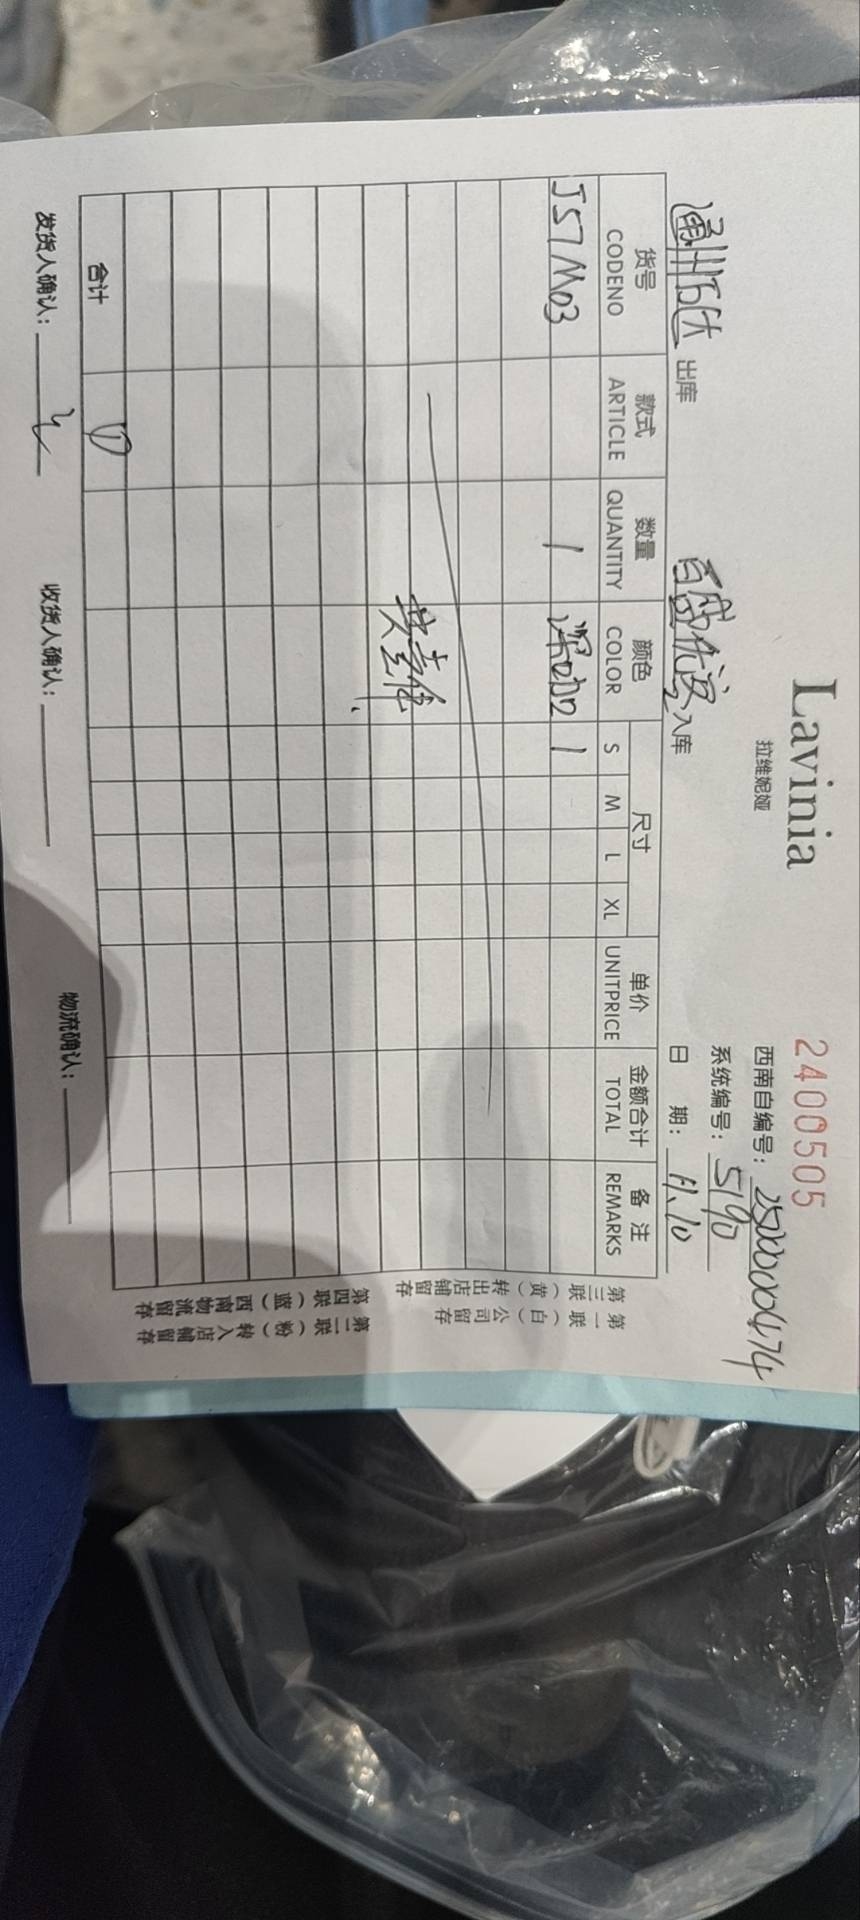 Lavinia
拉维妮娅
2400505
西南自编号：2500000474
系统编号：5190
通州万达 出库 百盛优客 入库 日 期：11.10
货号 款式 数量 颜色 尺寸 单价 金额合计 备 注
CODENO ARTICLE QUANTITY COLOR S M L XL UNITPRICE TOTAL REMARKS
J57M03 1 深咖 1
合计 ①
发货人确认： 收货人确认： 物流确认：
第一联（白）公司留存
第三联（黄）转出店铺留存
第二联（粉）转入店铺留存
第四联（蓝）西南物流留存